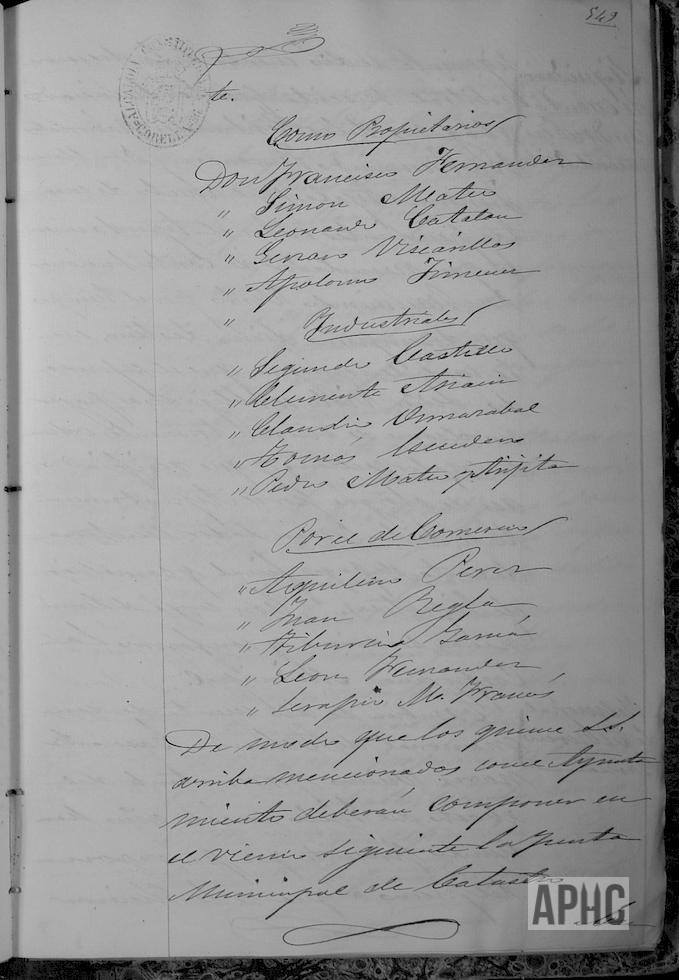 549
te.
Como Propietarios
Don Francisco Fernandez
" Simon Mateo
" Leonardo Catalan
" Genaro Viscarillas
" Apolonio Jimenez
"
Industriales
" Segundo Castillo
" Clemente Ariain
" Claudio Ormazabal
" Tomás Escudero
" Pedro Mateo y Arjita
Por el de Comercio
" Aquilino Perez
" Juan Regla
" Tiburcio Garcia
" Leon Fernandez
" Serapio M. Francés
De modo que los quince S.S.
arriba mencionados con el Ayunta
miento deberán componer en
el vienio siguiente la Junta
Municipal de Catastro
APHC